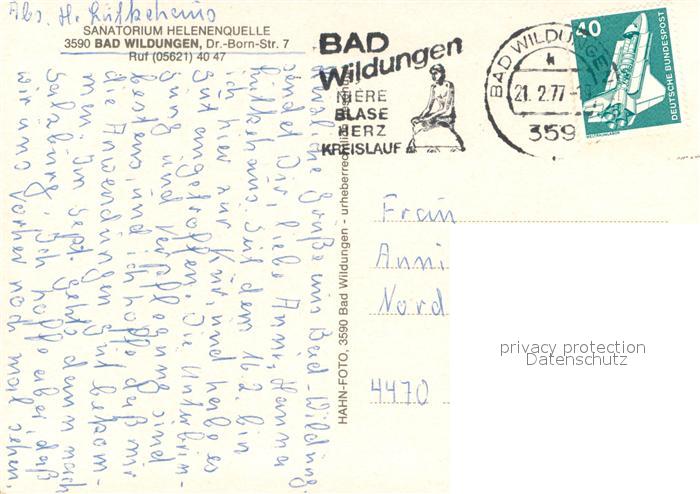 Abs. H. Lütkehaus
SANATORIUM HELENENQUELLE
3590 BAD WILDUNGEN, Dr.-Born-Str. 7
Ruf (05621) 40 47
BAD
Wildungen
NIERE
BLASE
HERZ
KREISLAUF
BAD WILDUNGEN
21. 2. 77
359
40
DEUTSCHE BUNDESPOST
Herzliche Grüße aus Bad-Wildung.
sendet Dir, liebe Anni, Hanna
Lütkehaus. Seit dem 16.2. bin
ich hier zur Kur und habe es
gut angetroffen. Die Unterbrin-
gung und Verpflegung sind
bestens und ich hoffe daß mir
die Anwendungen gut bekom-
men. Im Sept. geht's dann nach
Salzburg. Ich hoffe aber, daß
wir uns vorher noch mal sehen.
HAHN-FOTO, 3590 Bad Wildungen - urheberrechtlich
Frau
Anni
Nord
4470
privacy protection
Datenschutz